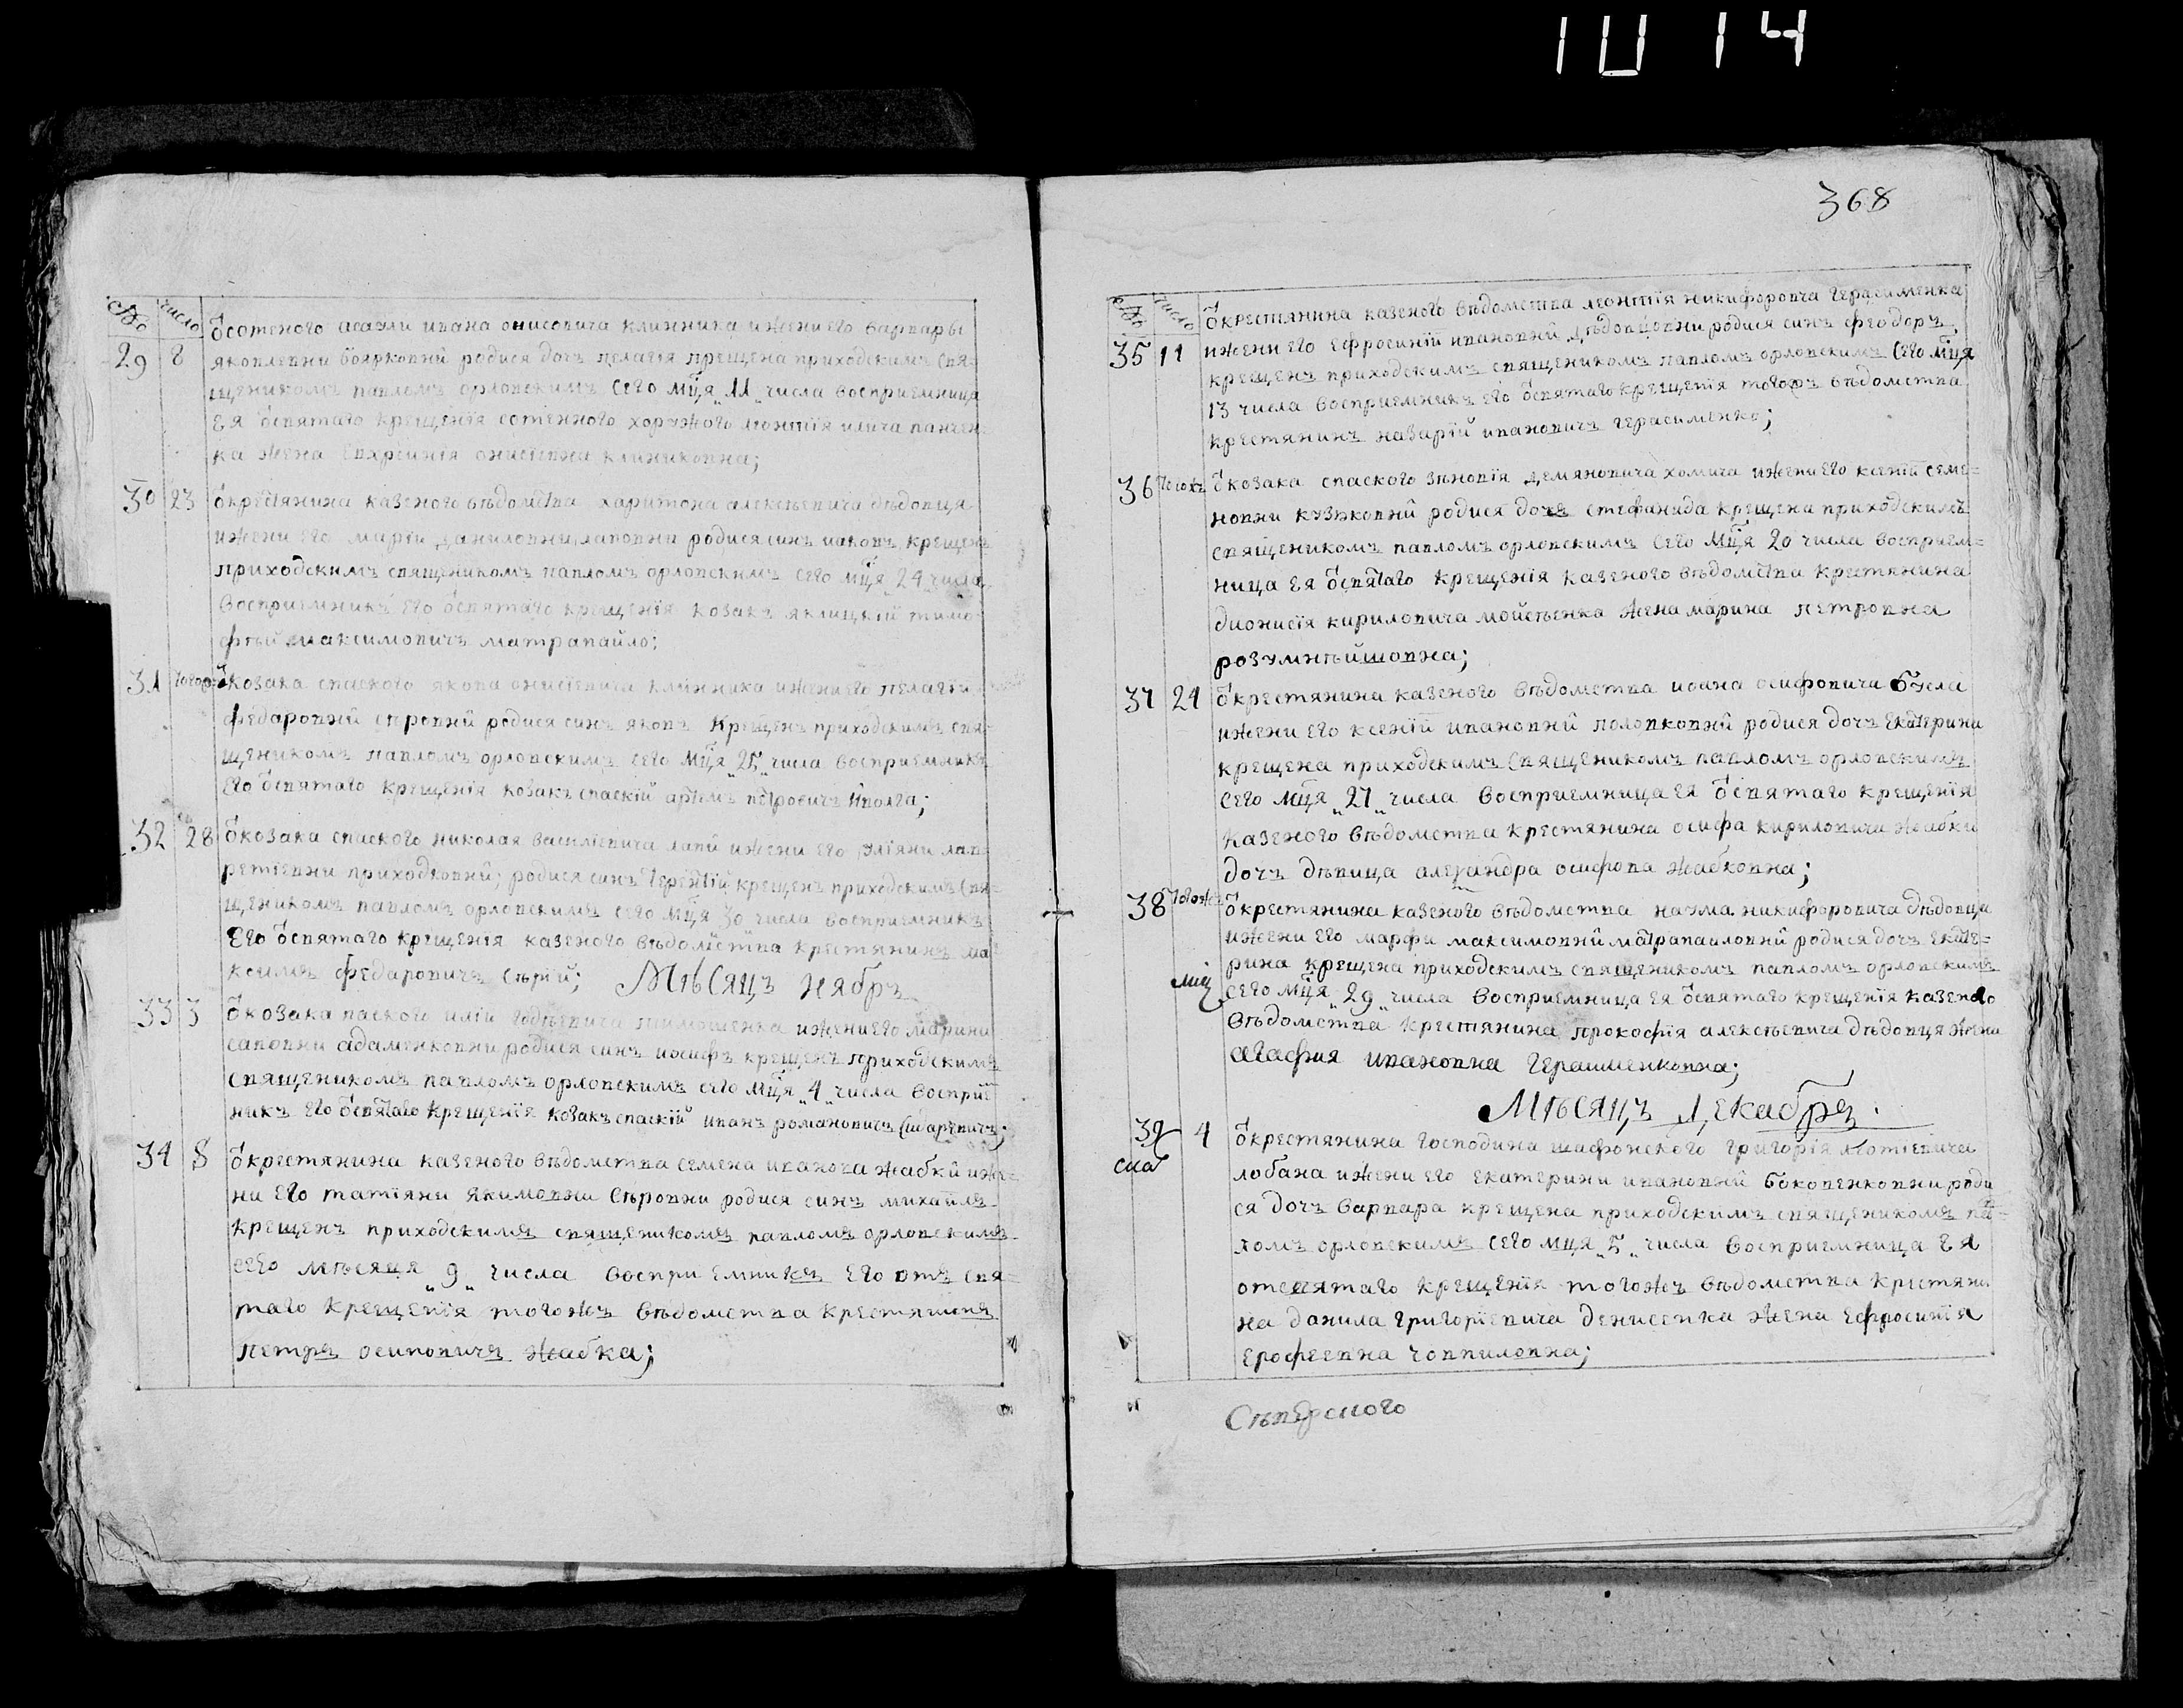 10 14
№ число
29 8 ѿ сотеного асаули ивана онисовича клинника и жени его варвары
яковлевни боярковнй родися дочъ пелагія крещена приходскимъ свя-
щеникомъ павломъ орловскимъ сего мця „11„ числа восприемница
ея ѿ святаго крещенія сотенного хоружого леонтія илича панчен-
ка жена онисіевна клиниковна;
30 23 ѿ крестянина казеного вѣдомства харитона алексѣевича дѣдовця
и жени его маріи даниловни лаповни родися синъ иаковъ крещенъ
приходскимъ священикомъ павломъ орловскимъ сего мця „24„ числа
восприемникъ его ѿ святаго крещенія козакъ яклицкій тимо-
фѣй максимовичъ матрапайло;
31 ѿ козака спаского якова онисіевича клинника и жени его пелагіи
федаровнй сѣровнй родися синъ яковъ крещенъ приходскимъ свя-
щеникомъ павломъ орловскимъ сего мця „25„ числа восприемникъ
его ѿ святаго крещенія козакъ спаскій артемъ петровичъ
32 28 ѿ козака спаского николая василіевича лапи и жени его уліяни лав-
ретіевни приходковнй; родися синъ терентій крещенъ приходскимъ свя-
щеникомъ павломъ орловскимъ сего мця 30 числа восприемникъ
его ѿ святаго крещенія казеного вѣдомства крестянинъ ма-
ксимъ федаровичъ сѣрій; Мѣсяцъ ноябръ
33 3 ѿ козака паского иліи тимошенка и жени его марини
савовни адаменковни родися синъ иосифъ крещенъ приходскимъ
священикомъ павломъ орловскимъ сего мця „4„ числа восприе
никъ его ѿ святаго крещенія козакъ спаскій иванъ романовичъ
34 8 ѿ крестянина казеного вѣдомства семена иванова жабки и же-
ни его татіяни якимовни сѣровни родися синъ михаилъ
крещенъ приходскимъ священикомъ павломъ орловскимъ
сего мѣсяця „9„ числа восприемникъ его отъ свя-
таго крещенія тогожъ вѣдомства крестянинъ
петръ осиповичъ жабка;
368
№ число
35 11 ѿ крестянина казеного вѣдомства леонтія никифоровча герасименка
и жени его ефросиній ивановнй дѣдовцовни родися синъ феодоръ
крещенъ приходскимъ священикомъ павломъ орловскимъ сего мця
13 числа восприемникъ его ѿ святаго крещенія тогожъ вѣдомства
крестянинъ назарій ивановичъ герасименко;
36 ѿ козака спаского зѣновія демяновича хомича и жени его ксеній семе-
новни кузковнй родися дочъ стефанида крещена приходскимъ
священикомъ павломъ орловскимъ сего мця 20 числа восприем-
ница ея ѿ святаго крещенія казеного вѣдомства крестянина
дионисія кириловича мойсѣенка жена марина петровна
розумнѣйшовна;
37 24 ѿ крестянина казеного вѣдомства иоана осифовича бусла
и жени его ксеній ивановнй половковнй родися дочъ екатерини
крещена приходскимъ священикомъ павломъ орловскимъ
сего мця „27„ числа восприемница ея ѿ святаго крещенія
казеного вѣдомства крестянина осифа кириловича жабки
дочъ дѣвица александра осифова жабковна;
38 тогожъ ѿ крестянина казеного вѣдомства наума никифоровича дѣдовця
и жени его марфи максимовнй матрапаиловнй родися дочъ екате-
рина крещена приходскимъ священикомъ павломъ орловскимъ
сего мця „29„ числа восприемница ея ѿ святаго крещенія казеного
вѣдомства крестянина прокофія алексѣевича дѣдовця жена
агафия ивановна герашменковна;
Мѣсяцъ Декабръ.
39 4 ѿ крестянина господина шафонского григорія
лобана и жени его екатерини ивановнй боковенковни роди
ся дочъ варвара крещена приходскимъ священикомъ па-
ломъ орловскимъ сего мця „5„ числа восприемница ея
отсвятаго крещенія тогожъ вѣдомства крестяни
на данила григоріевича денисенка жена ефросинія
ерофеевна чоппиловна;